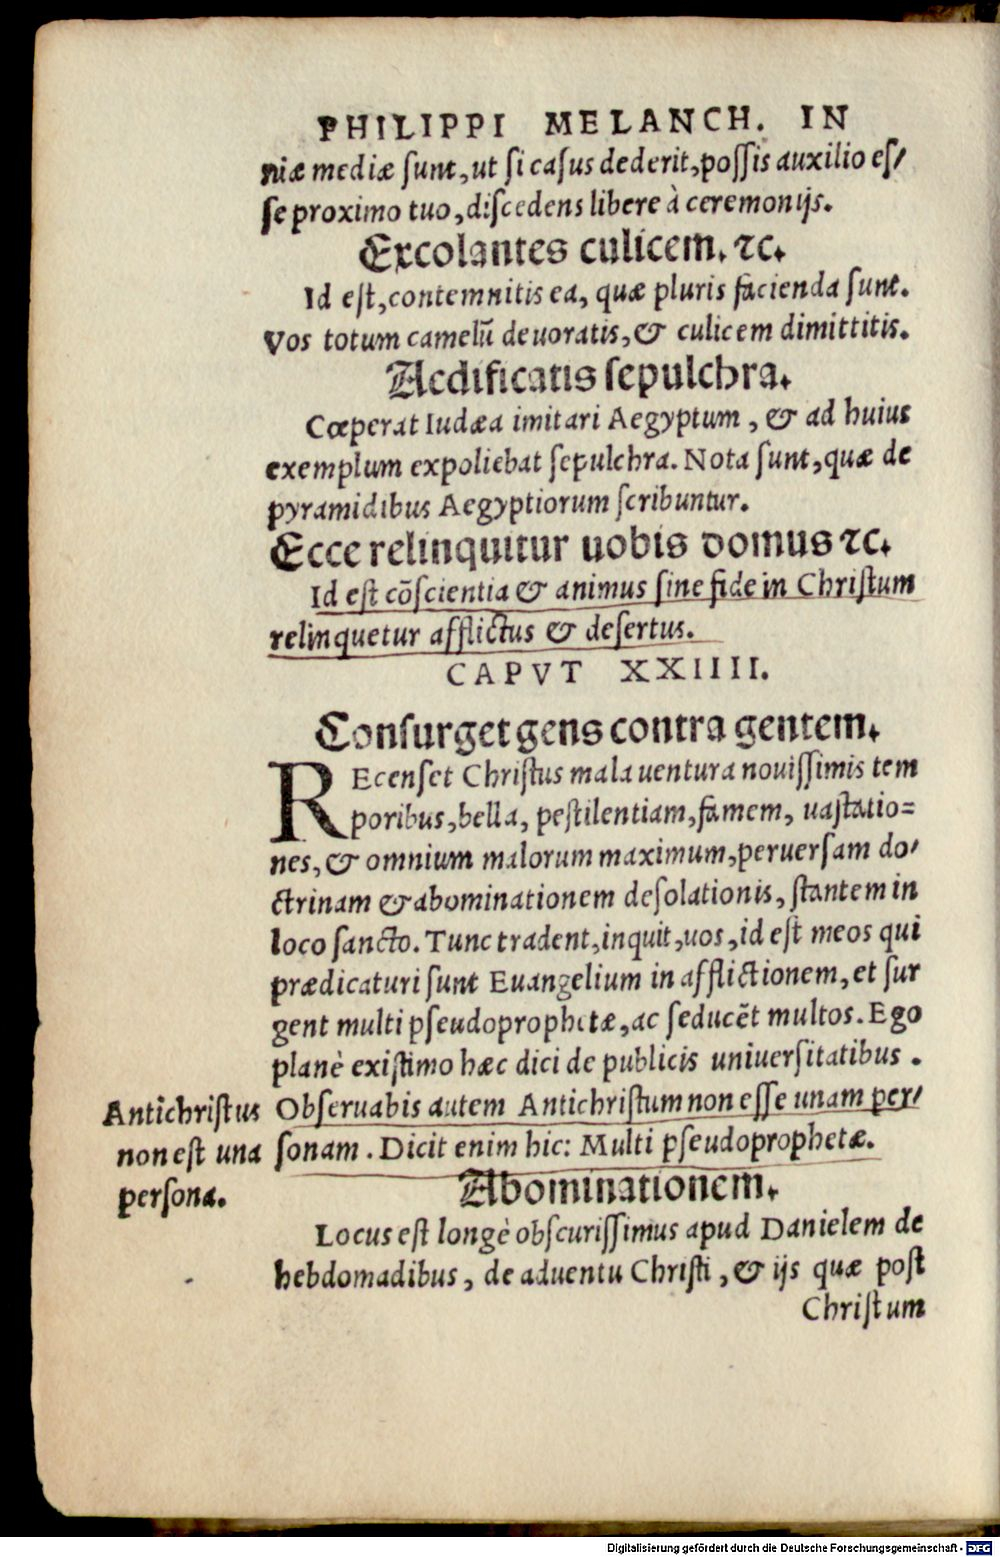 PHILIPPI MELANCH. IN
niæ mediæ sunt, ut si casus dederit, possis auxilio es/
se proximo tuo, discedens libere à ceremonijs.
Excolantes culicem. ⁊c.
Id est, contemnitis ea, quæ pluris facienda sunt.
Vos totum camelũ deuoratis, & culicem dimittitis.
Aedificatis sepulchra.
Cœperat Iudæa imitari Aegyptum, & ad huius
exemplum expoliebat sepulchra. Nota sunt, quæ de
pyramidibus Aegyptiorum scribuntur.
Ecce relinquitur uobis domus ⁊c.
Id est cõscientia & animus sine fide in Christum
relinquetur afflictus & desertus.
CAPVT XXIIII.
Consurget gens contra gentem.
REcenset Christus mala uentura nouissimis tem
poribus, bella, pestilentiam, famem, uastatio=
nes, & omnium malorum maximum, peruersam do/
ctrinam & abominationem desolationis, stantem in
loco sancto. Tunc tradent, inquit, uos, id est meos qui
prædicaturi sunt Euangelium in afflictionem, et sur
gent multi pseudoprophetæ, ac seducẽt multos. Ego
planè existimo hæc dici de publicis uniuersitatibus.
Obseruabis autem Antichristum non esse unam per/
sonam. Dicit enim hic: Multi pseudoprophetæ.
Antichristus
non est una
persona.
Abominationem.
Locus est longè obscurissimus apud Danielem de
hebdomadibus, de aduentu Christi, & ijs quæ post
Christum
Digitalisierung gefördert durch die Deutsche Forschungsgemeinschaft - DFG